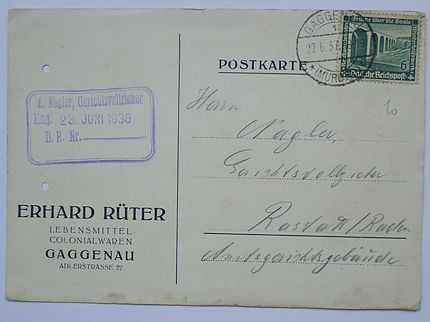 GAGGENAU
22.6.37
(MURG
Brücke über die Saale
6
Deutsche Reichspost
POSTKARTE
A. Nagler, Gerichtsvollzieher
Eing. 23. JUNI 1936
D. R. Nr.
Herrn
Nagler,
Gerichtsvollzieher
Rastatt/Baden
Amtsgerichtsgebäude
ERHARD RÜTER
LEBENSMITTEL
COLONIALWAREN
GAGGENAU
ADLERSTRASSE 22